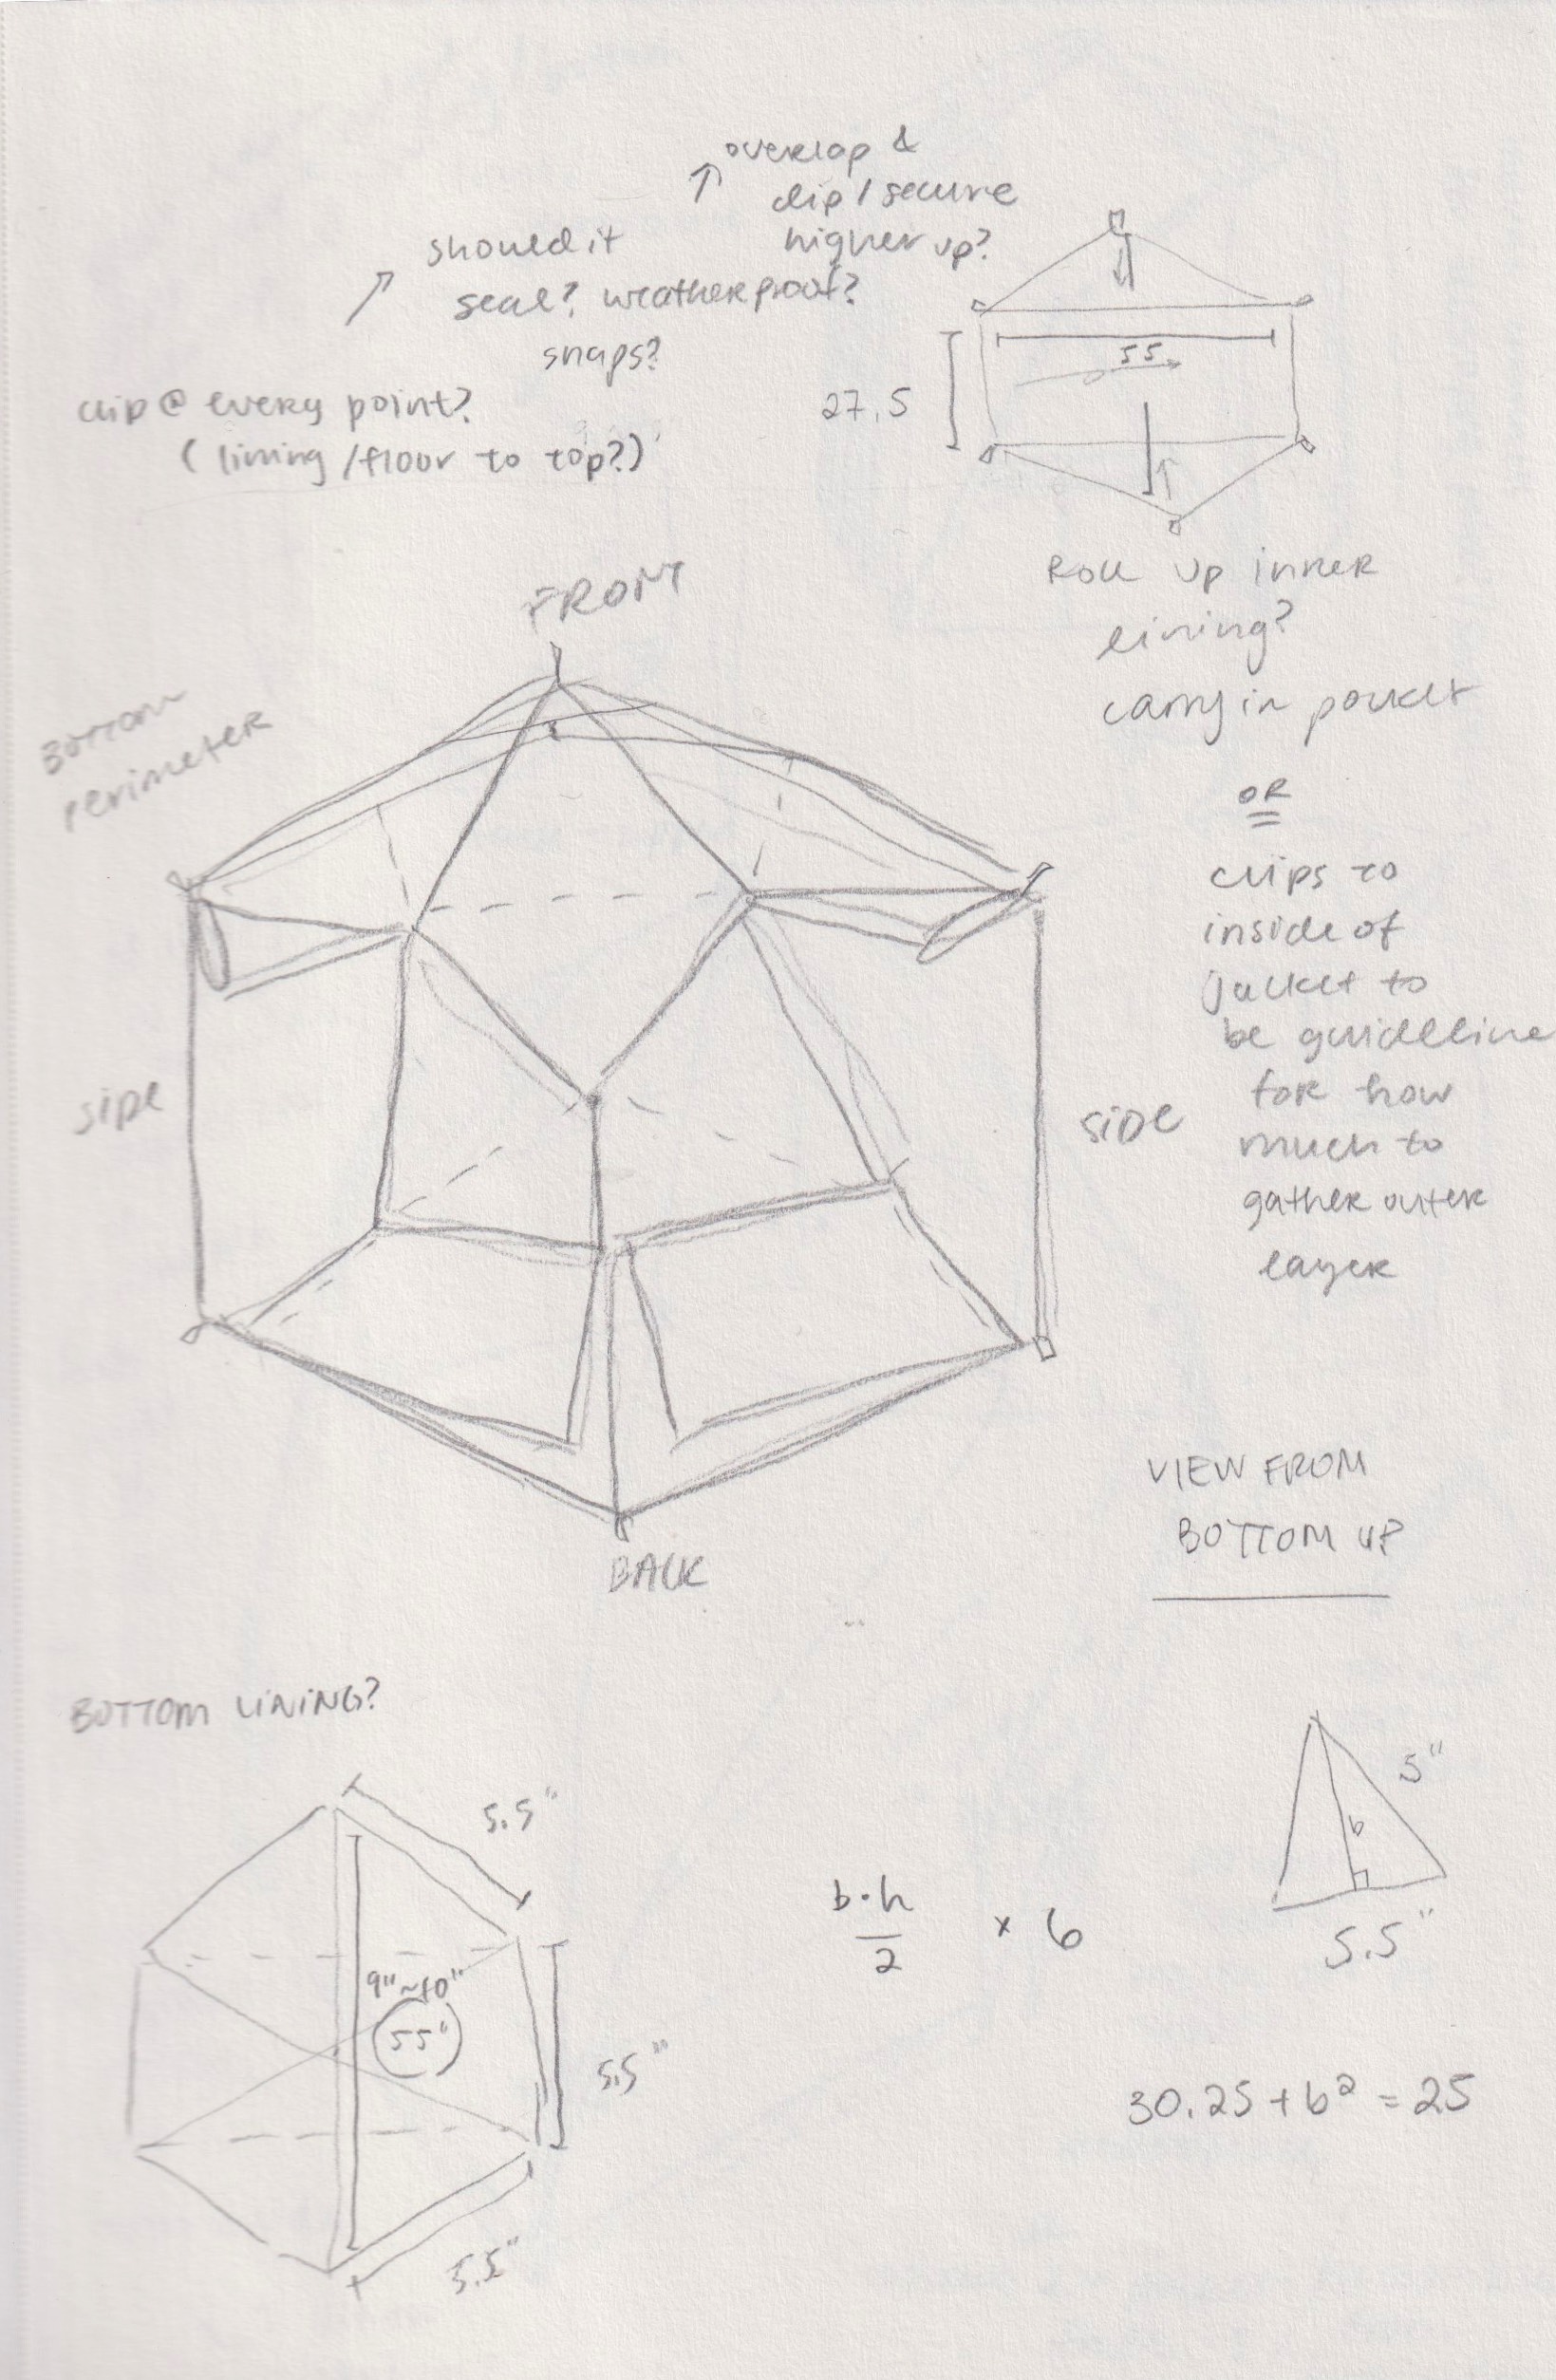 overlap &
clip / secure
higher up?
should it
seal? weatherproof?
snaps?
clip @ every point?
(lining / floor to top?)
55
27.5
Roll up inner
lining?
carry in pocket
OR
clips to
inside of
jacket to
be guideline
for how
much to
gather outer
layer
FRONT
BOTTOM
perimeter
side
SIDE
BACK
VIEW FROM
BOTTOM UP
BOTTOM LINING?
5.5"
9"~10"
55"
5.5"
5.5"
b·h
2
x 6
5"
b
5.5"
30.25 + b² = 25